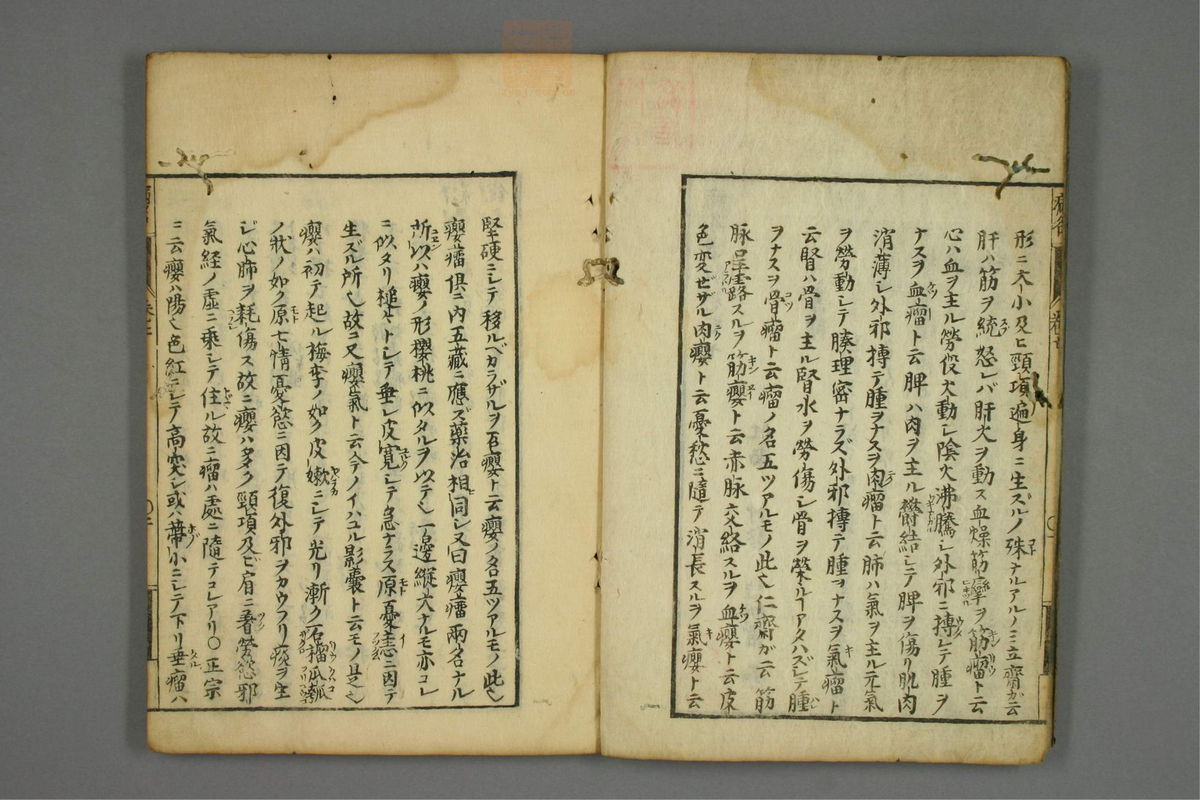 形ニ大小及ヒ頸項遍身ニ生ズルノ殊ナルアルノミ立齋ガ云
肝ハ筋ヲ統怒レバ肝火ヲ動ス血燥筋攣ヲ筋瘤ト云
心ハ血ヲ主ル勞役火動シ陰火沸騰シ外邪ニ搏レテ腫ヲ
ナスヲ血瘤ト云脾ハ肉ヲ主ル欝結シテ脾ヲ傷リ肌肉
消薄シ外邪搏テ腫ヲナスヲ肉瘤ト云肺ハ氣ヲ主ル元氣
ヲ勞動シテ腠理密ナラズ外邪搏テ腫ヲナスヲ氣瘤ト
云腎ハ骨ヲ主ル腎水ヲ勞傷シ骨ヲ榮ルヿアタハズシテ腫
ヲナスヲ骨瘤ト云瘤ノ名五ツアルモノ此也仁齋ガ云筋
脉呈露スルヲ筋癭ト云赤脉交絡スルヲ血癭ト云皮
色変ゼザル肉癭ト云憂愁ニ隨テ消長スルヲ氣癭ト云
堅硬ニシテ移ルベカラザルヲ石癭ト云癭ノ名五ツアルモノ此也
癭瘤俱ニ内五藏ニ應ズ藥治相同シ又曰癭瘤兩名ナル
所以ハ癭ノ形櫻桃ニ似タルヲ以テ也一邊縱大ナルモ亦コレ
ニ似タリ槌トシテ垂レ皮寛シテ急ナラス原憂恚ニ因テ
生ズル所也故ニ又癭氣ト云今ノイハユル影囊ト云モノ是也
癭ハ初テ起ル梅李ノ如ク皮嫰ニシテ光リ漸ク石榴瓜瓠
ノ状ノ如ク原七情憂慾ニ因テ復外邪ヲカウフリ痰ヲ生
ジ心肺ヲ耗傷ス故ニ癭ハ多ク頸項及ビ肩ニ著勞慾邪
氣経ノ虚ニ乘シテ住ル故ニ瘤ハ處ニ隨テコレアリ○正宗
ニ云癭ハ陽也色紅ニシテ高突シ或ハ蔕小ニシテ下リ垂瘤ハ